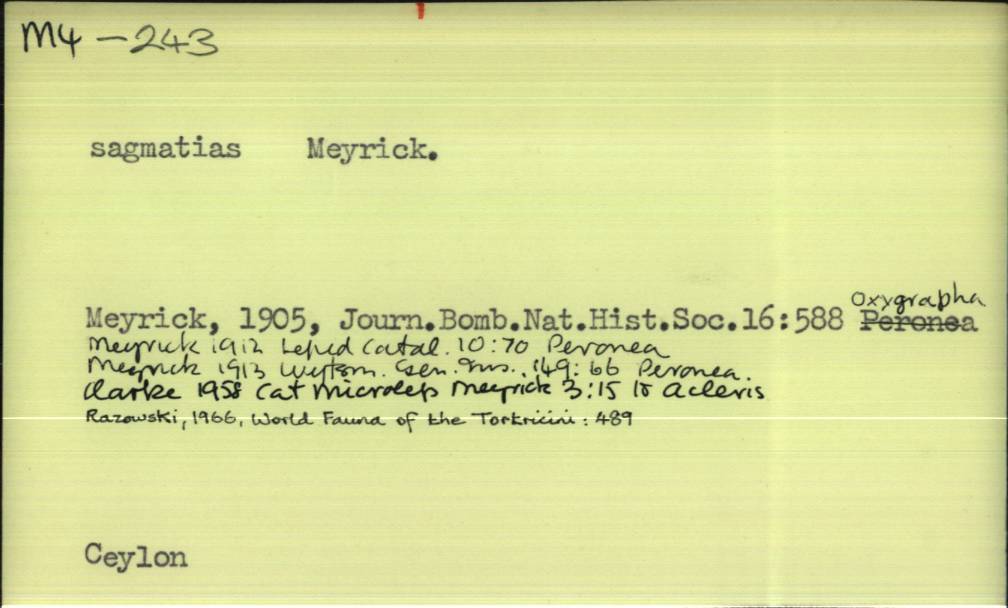 M4-243
sagmatias Meyrick.
Oxygrapha
Meyrick, 1905, Journ.Bomb.Nat.Hist.Soc.16:588 Peronea
Meyrick 1912 Lepid Catal. 10:70 Peronea
Meyrick 1913 Wytsm. Gen. Ins. 149:66 Peronea.
Clarke 1958 Cat Microleps Meyrick 3:15 to Acleris
Razowski, 1966, World Fauna of the Tortricini: 489
Ceylon